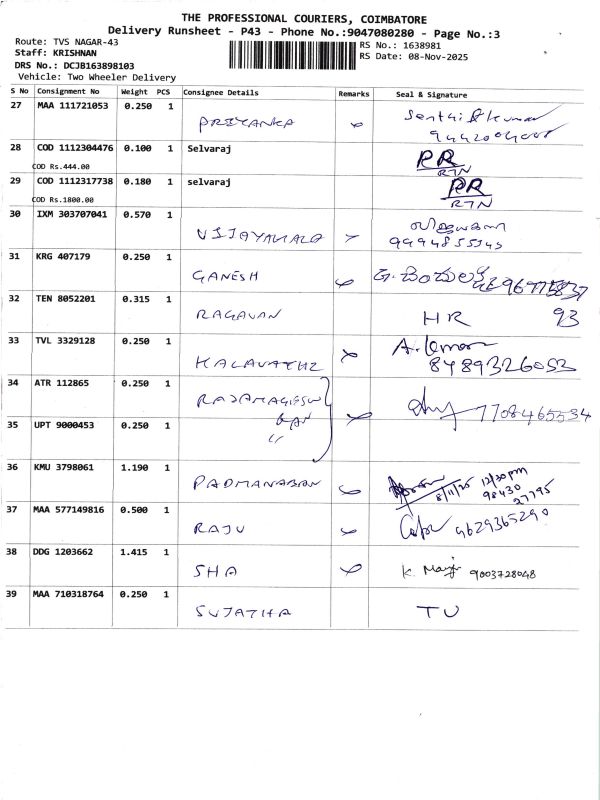 THE PROFESSIONAL COURIERS, COIMBATORE
Delivery Runsheet - P43 - Phone No.:9047080280 - Page No.:3
Route: TVS NAGAR-43
Staff: KRISHNAN
DRS No.: DCJB163898103
Vehicle: Two Wheeler Delivery
RS No.: 1638981
RS Date: 08-Nov-2025
S No Consignment No Weight PCS Consignee Details Remarks Seal & Signature
27 MAA 111721053 0.250 1 PRIYANKA Senthil kumar
28 COD 1112304476 0.100 1 Selvaraj RR
COD Rs.444.00 RTN
29 COD 1112317738 0.180 1 selvaraj RR
COD Rs.1800.00 RTN
30 IXM 303707041 0.570 1 VIJAYAMALA
31 KRG 407179 0.250 1 GANESH
32 TEN 8052201 0.315 1 RAGAVAN HR 93
33 TVL 3329128 0.250 1 KALAVATHI
8489326053
34 ATR 112865 0.250 1 7708465534
35 UPT 9000453 0.250 1 "
36 KMU 3798061 1.190 1 PADMANABAN 8/11/25 12/30pm
98430
27795
37 MAA 577149816 0.500 1 RAJU 9629365290
38 DDG 1203662 1.415 1 SHA K. 9003728048
39 MAA 710318764 0.250 1 SUJATHA TU